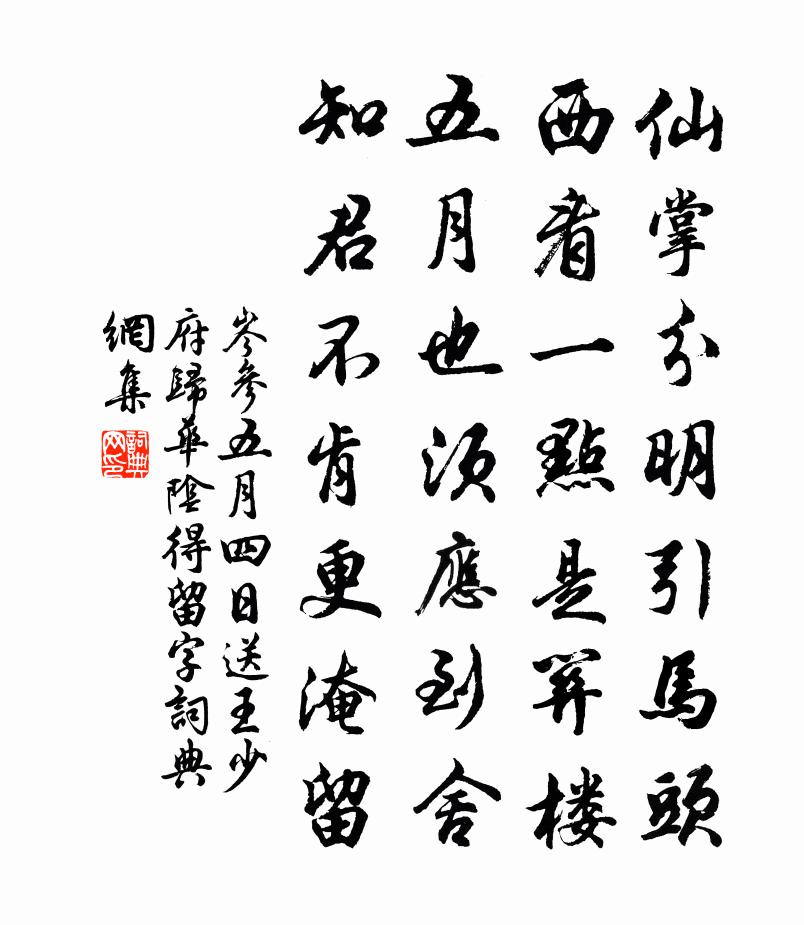 仙掌分明引馬頭
西看一點是關楼
五月也須應到舍
知君不肯更淹留
岑參五月四日送王少
府歸華陰得留字詞典
網集
詞典网印